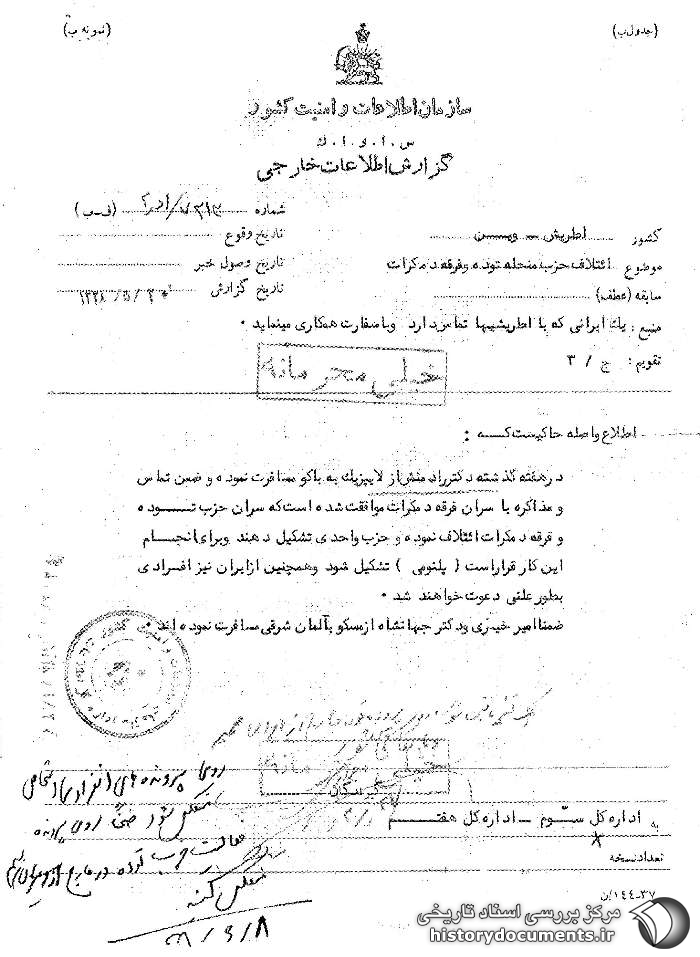 (جدول ب)
(نمونه ب)
سازمان اطلاعات و امنیت کشور
س . ا . و . ا . ك
گزارش اطلاعات خارجی
شماره (ف-ب)
کشور اطریش – وین
تاریخ وقوع
موضوع ائتلاف حزب منحله توده و فرقه دمکرات
تاریخ وصول خبر
سابقه (عطف)
تاریخ گزارش
منبع : يك ایرانی که با اطریشیها تماس دارد وباسفارت همکاری مینماید .
تقویم : ج / ۳
خیلی محرمانه
اطلاع واصله حاکیست کـــه :
در هفته گذشته دکتر رادمنش از لایپزیك به باکو مسافرت نموده و ضمن تماس
و مذاکره با سران فرقه دمکرات موافقت شده است که سران حزب تـــوده
و فرقه دمکرات ائتلاف نموده و حزب واحدی تشکیل دهند وبرای انجـــام
این کار قرار است ( پلنومی ) تشکیل شود وهمچنین از ایران نیز افرادی
بطور علنی دعوت خواهند شد .
ضمنا امیر خیزی ودکتر جهانشاه از مسکو بآلمان شرقی مسافرت نموده اند .
خیلی محرمانه
گیرندگان
به اداره کل سوم – اداره کل هفتـــم
تعداد نسخه
روی پرونده های انفرادی
منعکس شود ضمناً روی پرونده
فعالیت حزب توده در خارج از
منعکس کنید
۳۷-۱۴۴/ن
مرکز بررسی اسناد تاریخی
historydocuments.ir